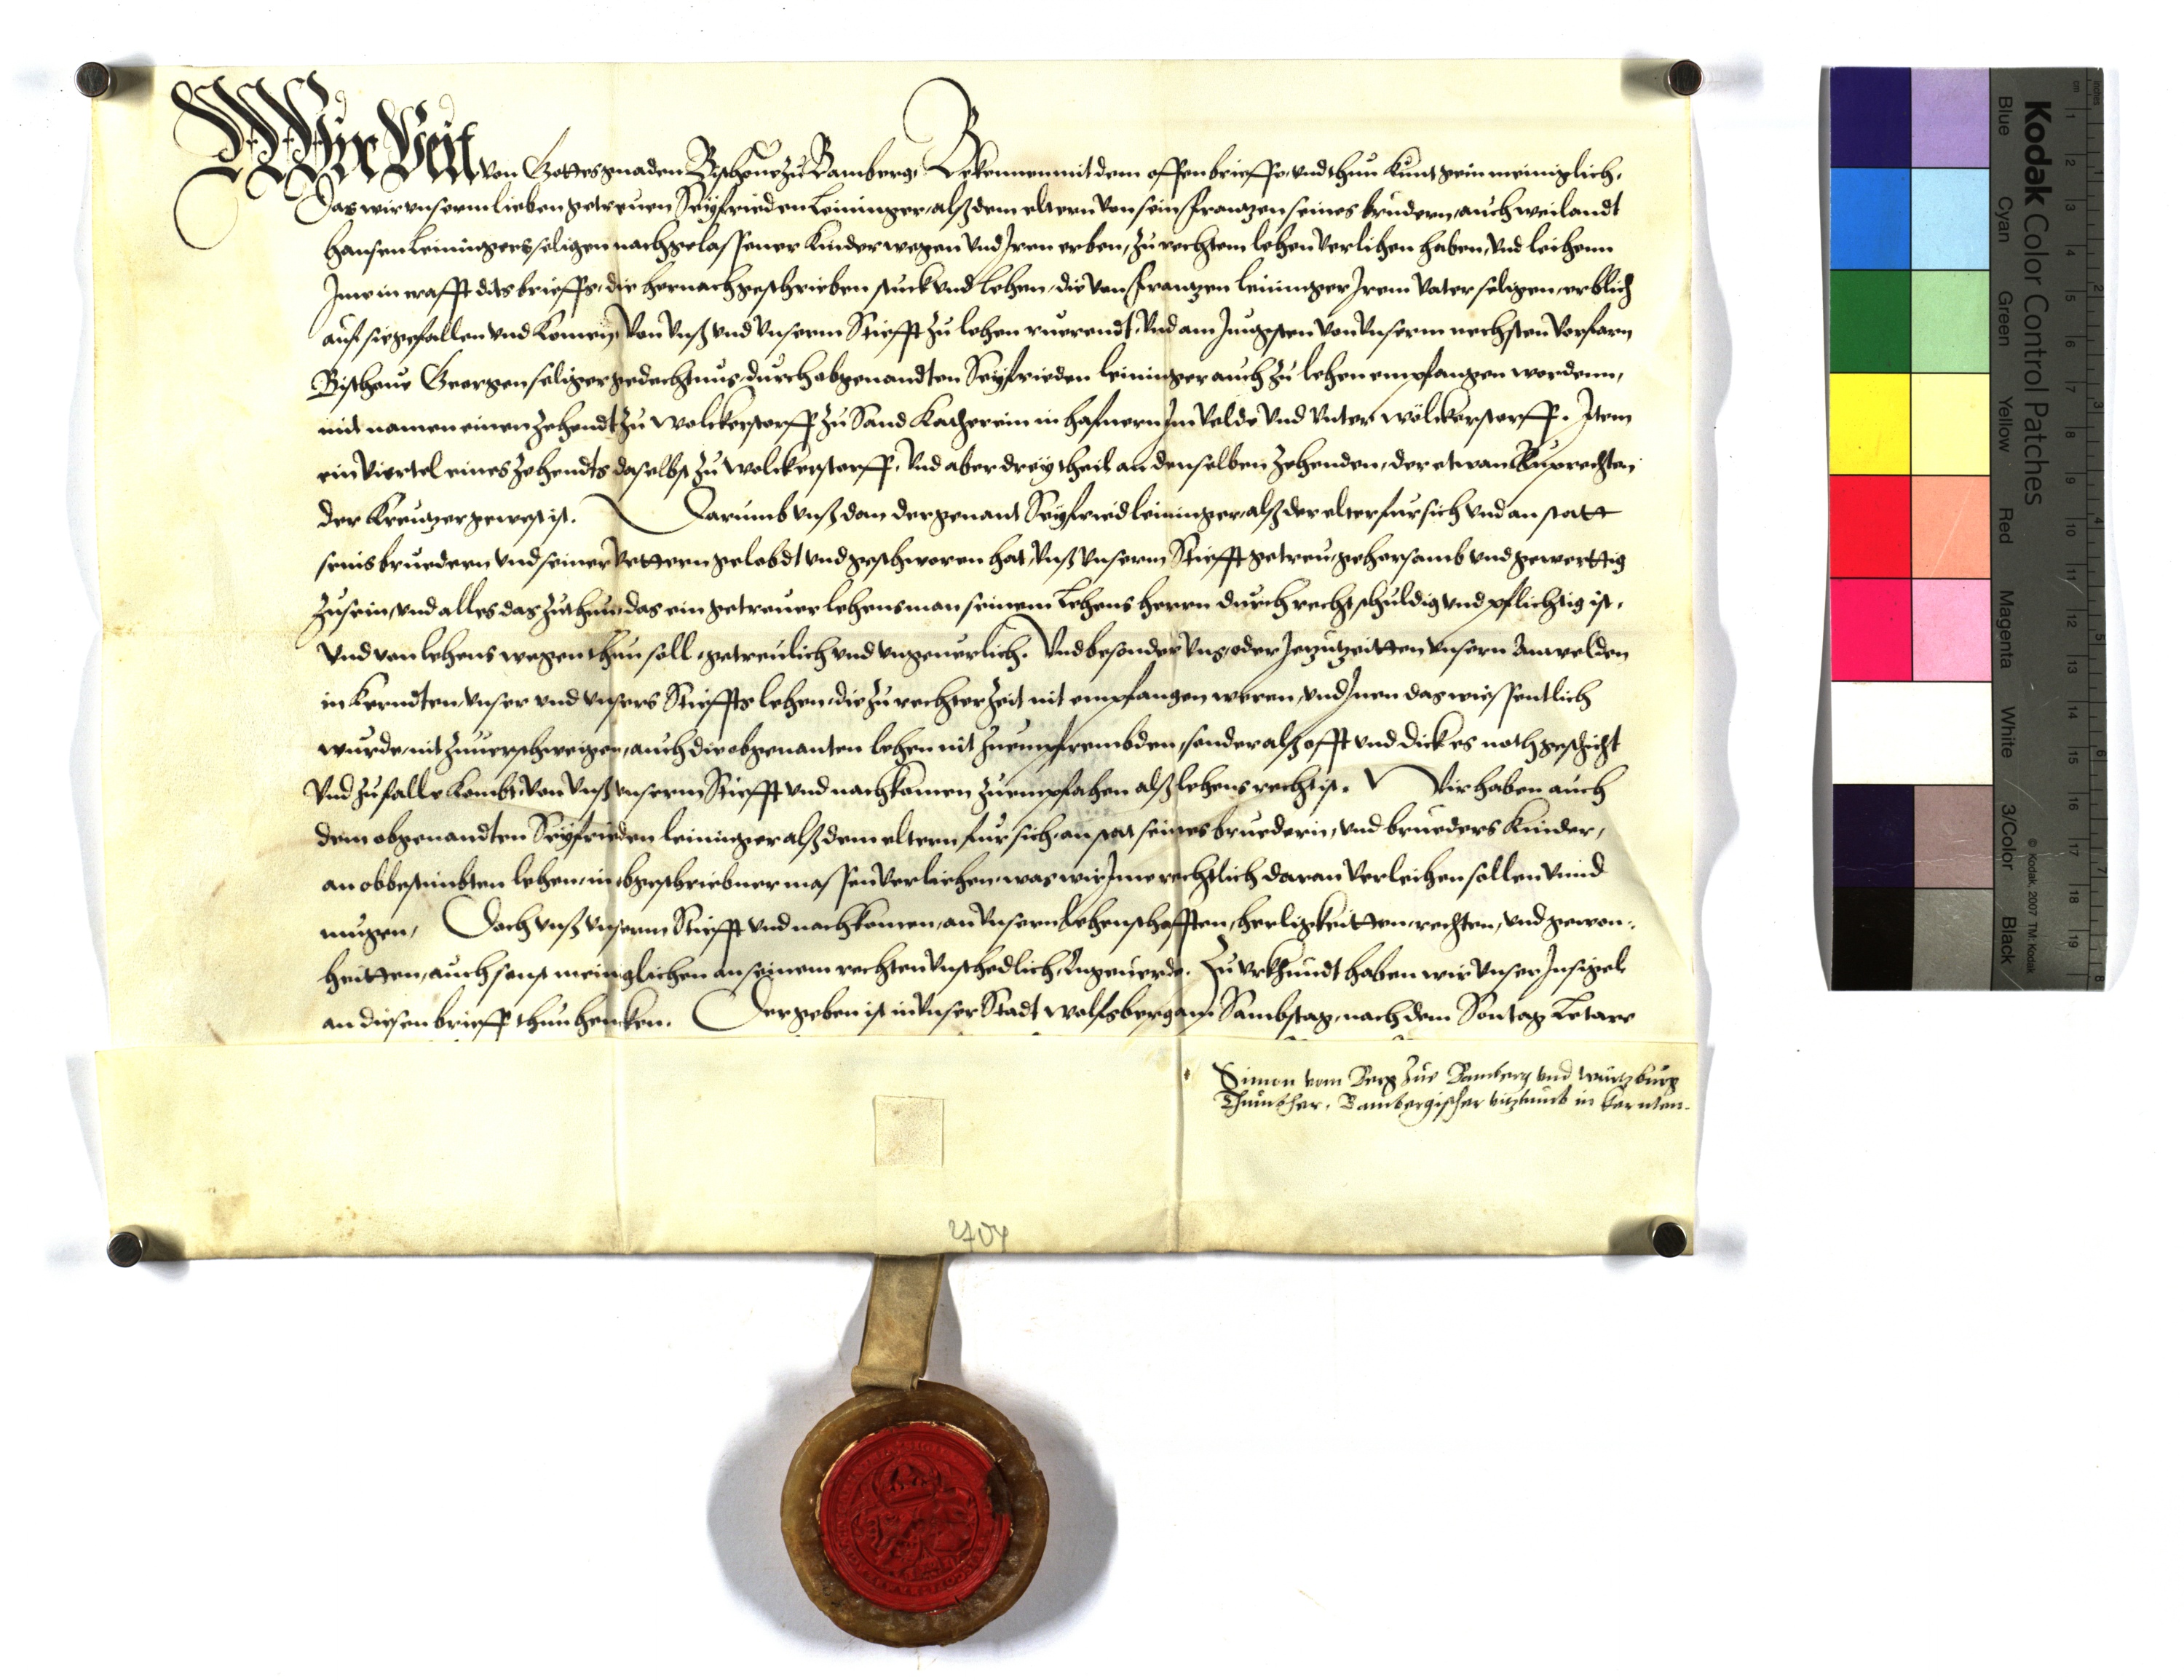 Wir Veit von Gottes gnaden Bischoue zu Bamberg, Bekennen mit dem offen brieffe, vnd thun kunt gein meniglich,
Das wir vnserm lieben getreuen Seyfrieden Leininger, alß dem eltern von sein, Frantzen seines bruedern, auch weilandt
Hansen Leiningers seligen nachgelassener Kinder wegen vnd Iren erben, zu rechtem lehen verlihen haben, vnd leihenn
Ine in crafft dits brieffs, die hernachgeschrieben stuck vnd lehen, die von Frantzen leininger Irem vater seligen, erblich
auf sie gefallen vnd komen, von vnß vnd vnserm Stiefft zu lehen ruerendt, vnd am Jungsten von vnserm nechsten vorfarn
Bischoue Georgen seliger gedechtnus, durch obgenandten Seyfrieden leininger auch zu lehen empfangen wordenn,
mit namen einen zehendt zu wolckerstorff zu Sand Katherein in hafnern Im velde vnd vnter wolckerstorff. Item
ein viertel eines zehendts daselbst zu wolckerstorff, vnd aber drey theil an denselben zehenden, der etwan Ruprechten
der Kreutzer gewest ist. Darumb vnß dan der genant Seyfried leininger, alß der elter fur sich vnd an statt
seins bruedern vnd seiner vettern gelobdt vnd geschworen hat, vnß vnserm Stiefft getreu, gehorsamb vnd gewerttig
zu sein, vnd alles das zuthun, das ein getreuer lehensman seinem Lehens herrn durch recht schuldig vnd pflichtig ist,
vnd von lehens wegen thun soll, getreulich vnd vngeuerlich. Vnd besonder vns, oder zutzeitten vnsern Anwelden
in kerndten, vnser vnd vnsers Stieffts lehen, die zu rechter zeit nit empfangen weren, vnd Inen das wiessentlich
wurde, nit zuuerschweigen, auch die obgenanten lehen nit zuempfrembden, sonder alß offt vnd dick es noth geschicht
vnd zufalle kombt, von vnß vnserm Stiefft vnd nachkomen zuempfahen alß lehens recht ist. Wir haben auch
dem obgenandten Seyfrieden leininger alß dem eltern fur sich, an stat seines bruedern, vnd brueders Kinder,
an obbestimbten lehen, in obgeschriebner massen verliehen, was wir Ine rechtlich daran verleihen sollen vnnd
mugen, Doch vnß vnserm Stiefft vnd nachkomen, an vnsern Lehenschafften, herligkeitten, rechten, vnd gewon-
heitten, auch sonst meinglichen an seinem rechten vnschedlich, Angeuerde. Zu vrkhundt haben wir vnser Insigel
an diesen brieff thun hencken. Der geben ist in vnser Stadt wolfsberg am Sambstag, nach dem Sontag Letare
Simon vom Berg zue Bamberg vnd wurtzburg
Thumbher, Bambergischer vitzdumb in kernten.
Kodak Color Control Patches
© Kodak, 2007 TM: Kodak
Blue Cyan Green Yellow Red Magenta White 3/Color Black
inches 1 2 3 4 5 6 7 8
cm 1 2 3 4 5 6 7 8 9 10 11 12 13 14 15 16 17 18 19